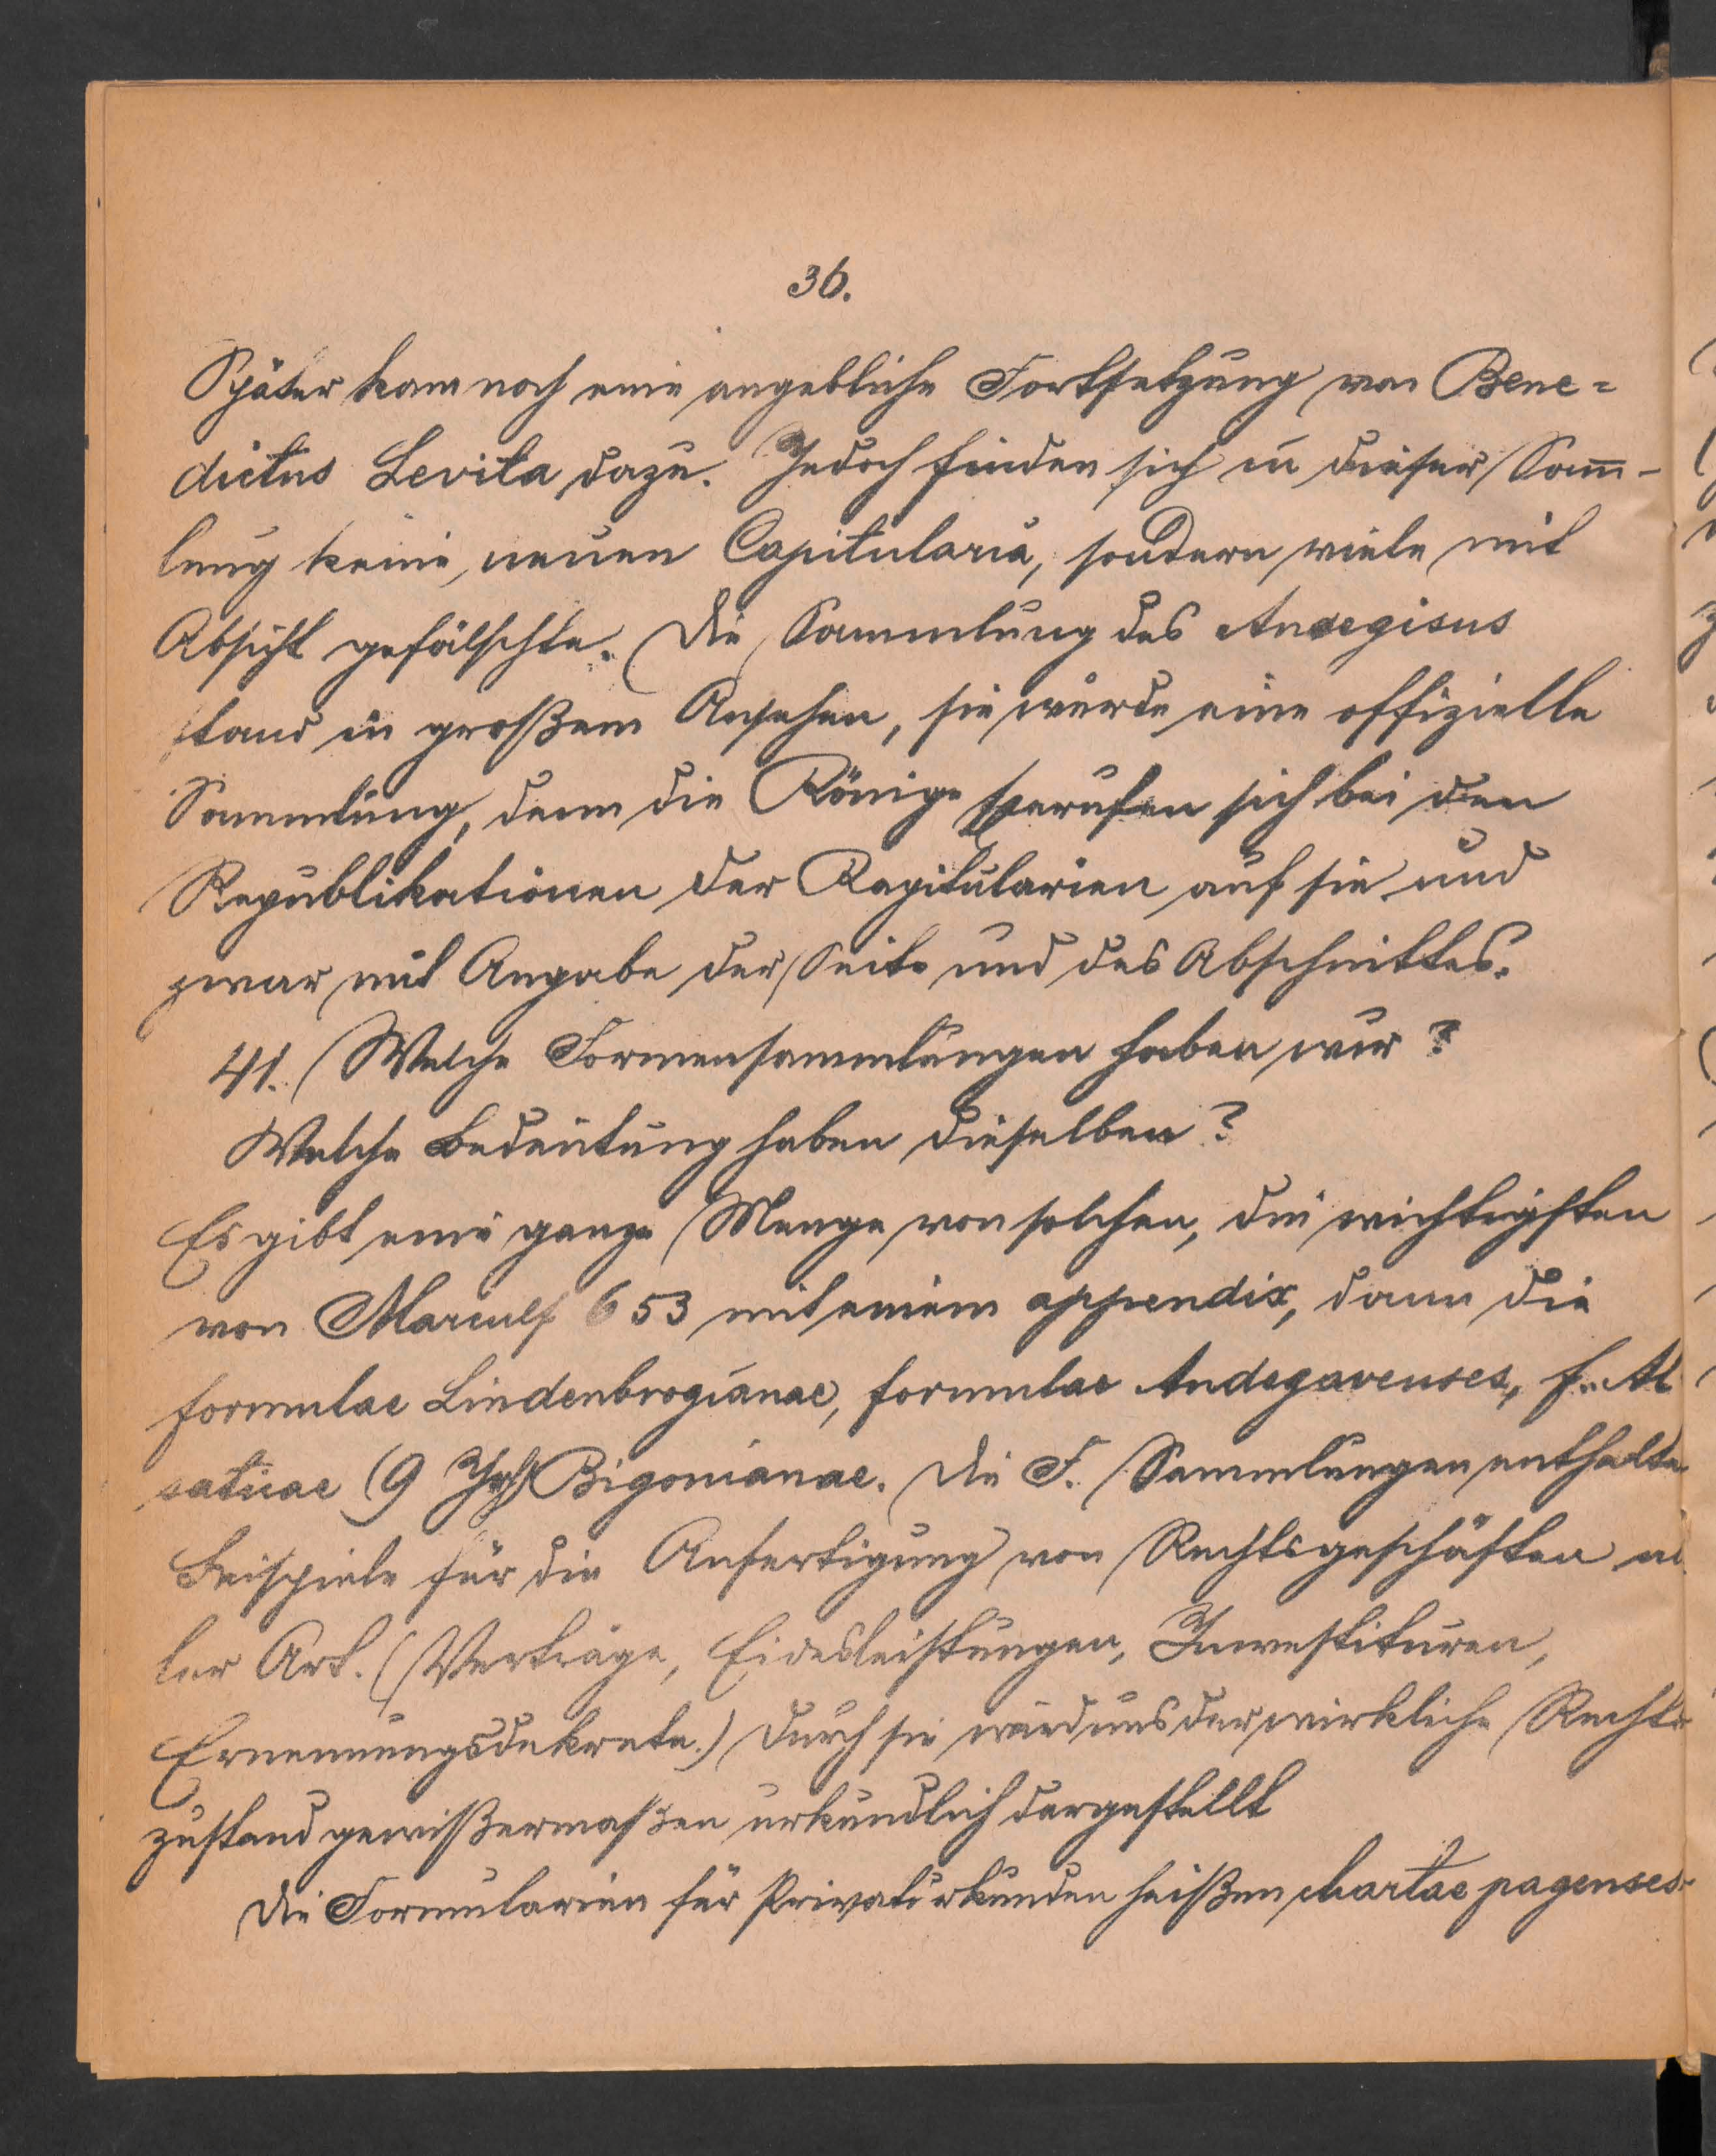 36.
Später kam noch eine angebliche Fortsetzung von Bene=
dictus Levita dazu. Jedoch finden sich in dieser Sam̄-
lung keine neuen Capitularia, sondern viele mit
Absicht gefälschte. Die Sammlung des Ansegisus
stand in großem Ansehen, sie wurde eine offizielle
Sammlung, denn die Könige berufen sich bei den
Republikationen der Kapitularien auf sie und
zwar mit Angabe der Seite und des Abschnittes.
41. Welche Formensammlungen haben wir?
Welche Bedeutung haben dieselben?
Es gibt eine ganze Menge von solchen, die wichtigsten
von Marculf 653 mit einem appendix, dann die
formulae Lindenbrogianae, formulae Andegavenses, f. Al
saticae (9 Jhh) Bigonianae. Die F. Sammlungen enthalten
Beispiele für die Anfertigung von Rechtsgeschäften al
ler Art. (Verträge, Eidesleistungen, Investituren,
Ernennungsdekrete.) Durch sie wird uns der wirkliche Rechts
zustand gewißermaßen urkundlich dargestellt
Die Formularien für Privaturkunden heißen chartae pagenses.